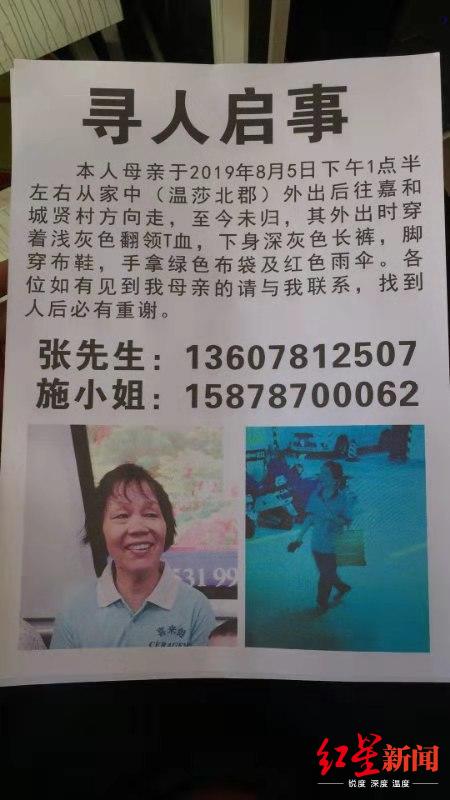 寻人启事
本人母亲于2019年8月5日下午1点半
左右从家中（温莎北郡）外出后往嘉和
城贤村方向走，至今未归，其外出时穿
着浅灰色翻领T血，下身深灰色长裤，脚
穿布鞋，手拿绿色布袋及红色雨伞。各
位如有见到我母亲的请与我联系，找到
人后必有重谢。
张先生：13607812507
施小姐：15878700062
531 99
CERAGEM
红星新闻
锐度 深度 温度